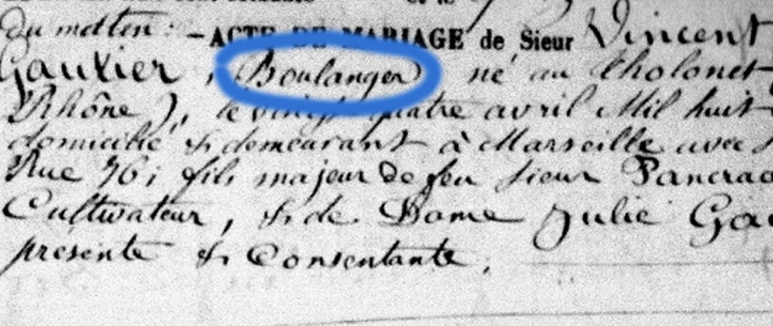 du matin : - ACTE DE MARIAGE de Sieur Vincent
Gautier, Boulanger né au Tholonet
Rhône), le vingt quatre avril Mil huit
domicilié & demeurant à Marseille avec
Rue 76; fils majeur de feu Sieur Pancra
Cultivateur, & de Dame Julie Ga
présente & Consentante.